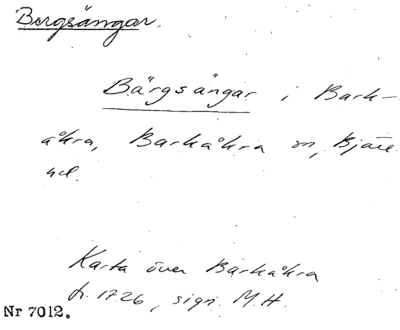 Bergsängar.
Bärgsängar i Bark-
åkra, Barkåkra sn, Bjäre
hd.
Karta över Barkåkra
fr. 1726, sign. M.H.
Nr 7012.